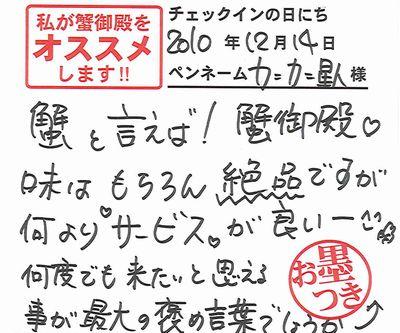 私が蟹御殿を
オススメ
します!!
チェックインの日にち
2010年12月14日
ペンネーム カニカニ星人 様
蟹と言えば!蟹御殿♡
味はもちろん絶品ですが
何より♥サービス♥が良いー
何度でも来たいと思える
事が最大の褒め言葉でしょうか
お墨つき